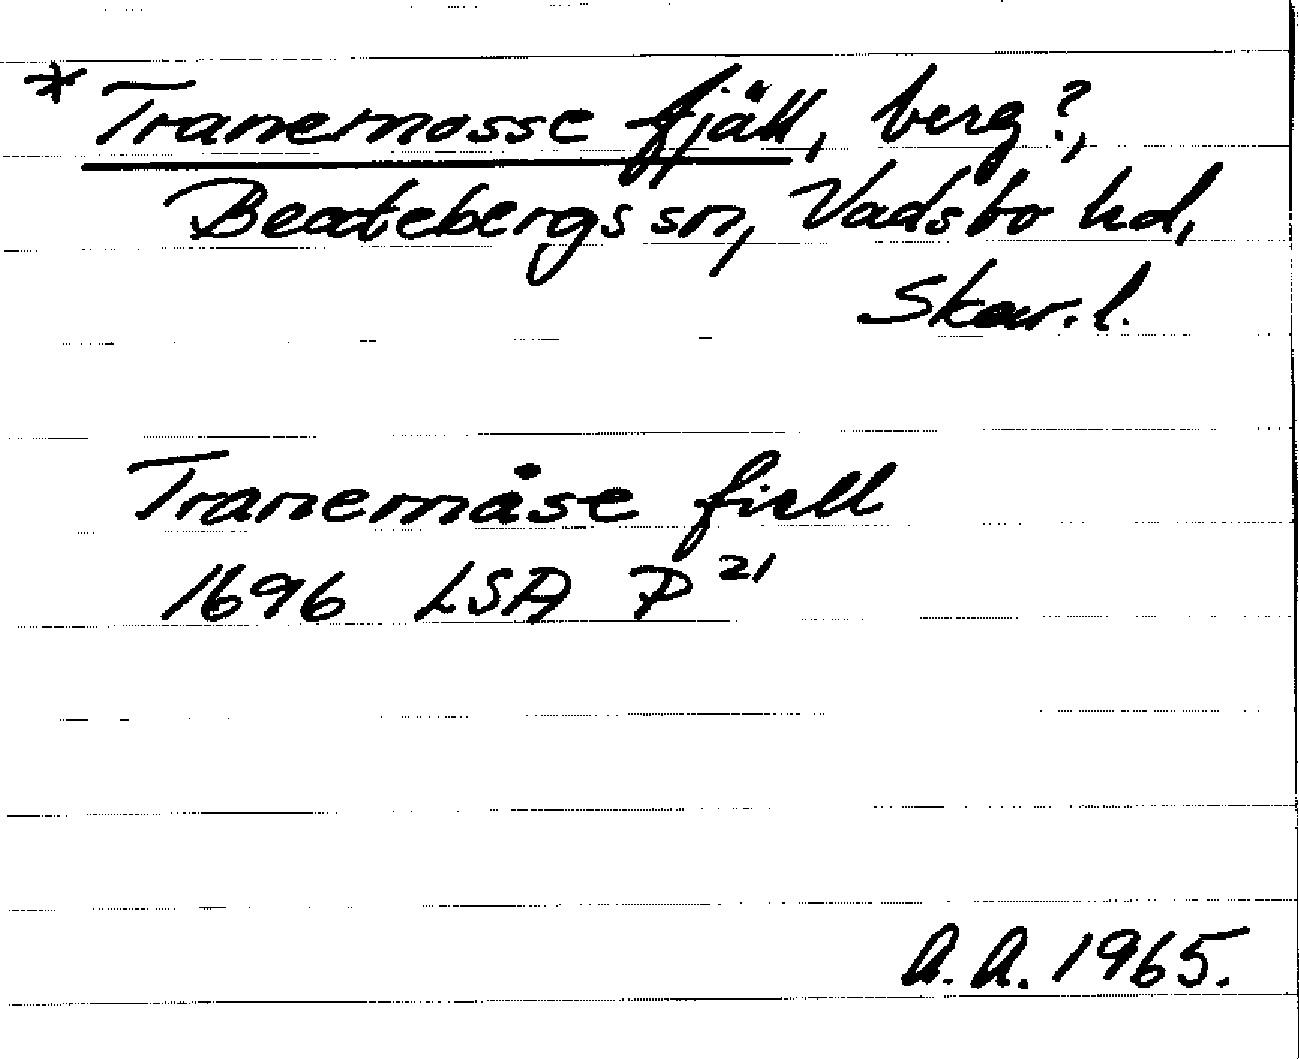 * Tranemosse fjäll, berg?,
Beatebergs sn, Vadsbo hd,
Skar. l.
Tranemåse fiell
1696 LSA P 21
A. A. 1965.